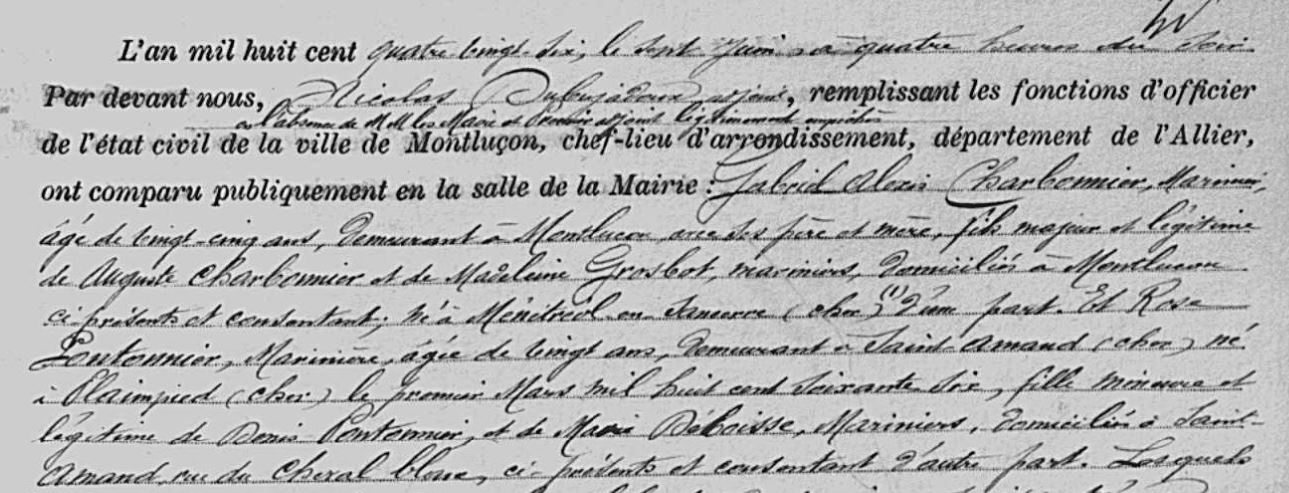 L'an mil huit cent quatre vingt six, le sept juin à quatre heures du soir
Par devant nous, Nicolas adjoint, remplissant les fonctions d'officier
en l'absence de M M les Maire et Premier adjoint légitimement empêchés
de l'état civil de la ville de Montluçon, chef-lieu d'arrondissement, département de l'Allier,
ont comparu publiquement en la salle de la Mairie : Gabriel Alexis Charbonnier, Marinier,
âgé de vingt-cinq ans, demeurant à Montluçon avec ses père et mère, fils majeur et légitime
de Auguste Charbonnier et de Madeleine Grosbot, mariniers, domiciliés à Montluçon
ci présents et consentant ; né à Ménétréol en Sancerre (cher) (1) d'une part. Et Rose
Pontonnier, Marinière, âgée de vingt ans, demeurant à Saint Amand (cher) né
à Plaimpied (cher) le premier Mars mil huit cent soixante six, fille mineure et
légitime de Denis Pontonnier, et de Marie Déboisse, Mariniers, domiciliés à Saint-
Amand, rue du Cheval blanc, ci-présents et consentant d'autre part. Lesquels